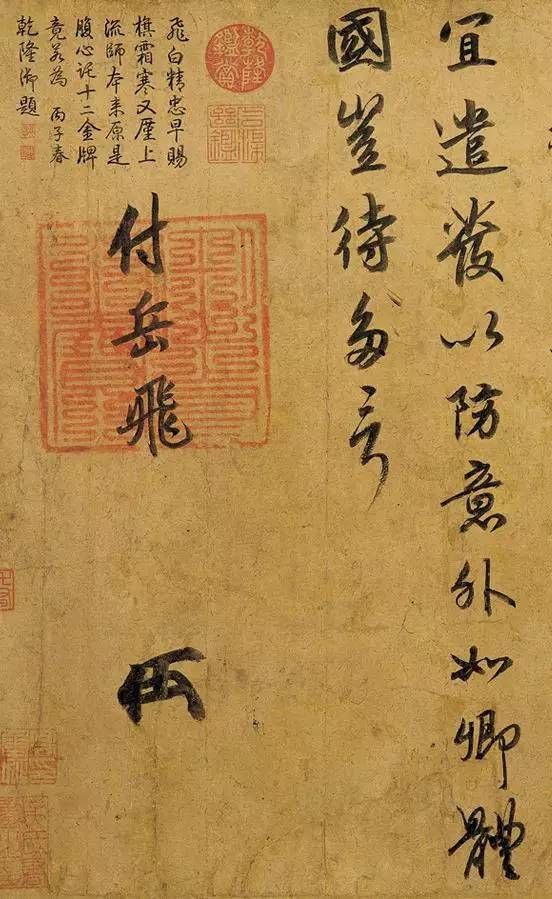 宜遣發以防意外如卿體
國豈待多言
付岳飛
乾隆鑑賞
飛白精忠早賜
旗霜寒又屢上
流師本來原是
腹心託十二金牌
竟若為 丙子春
乾隆御題